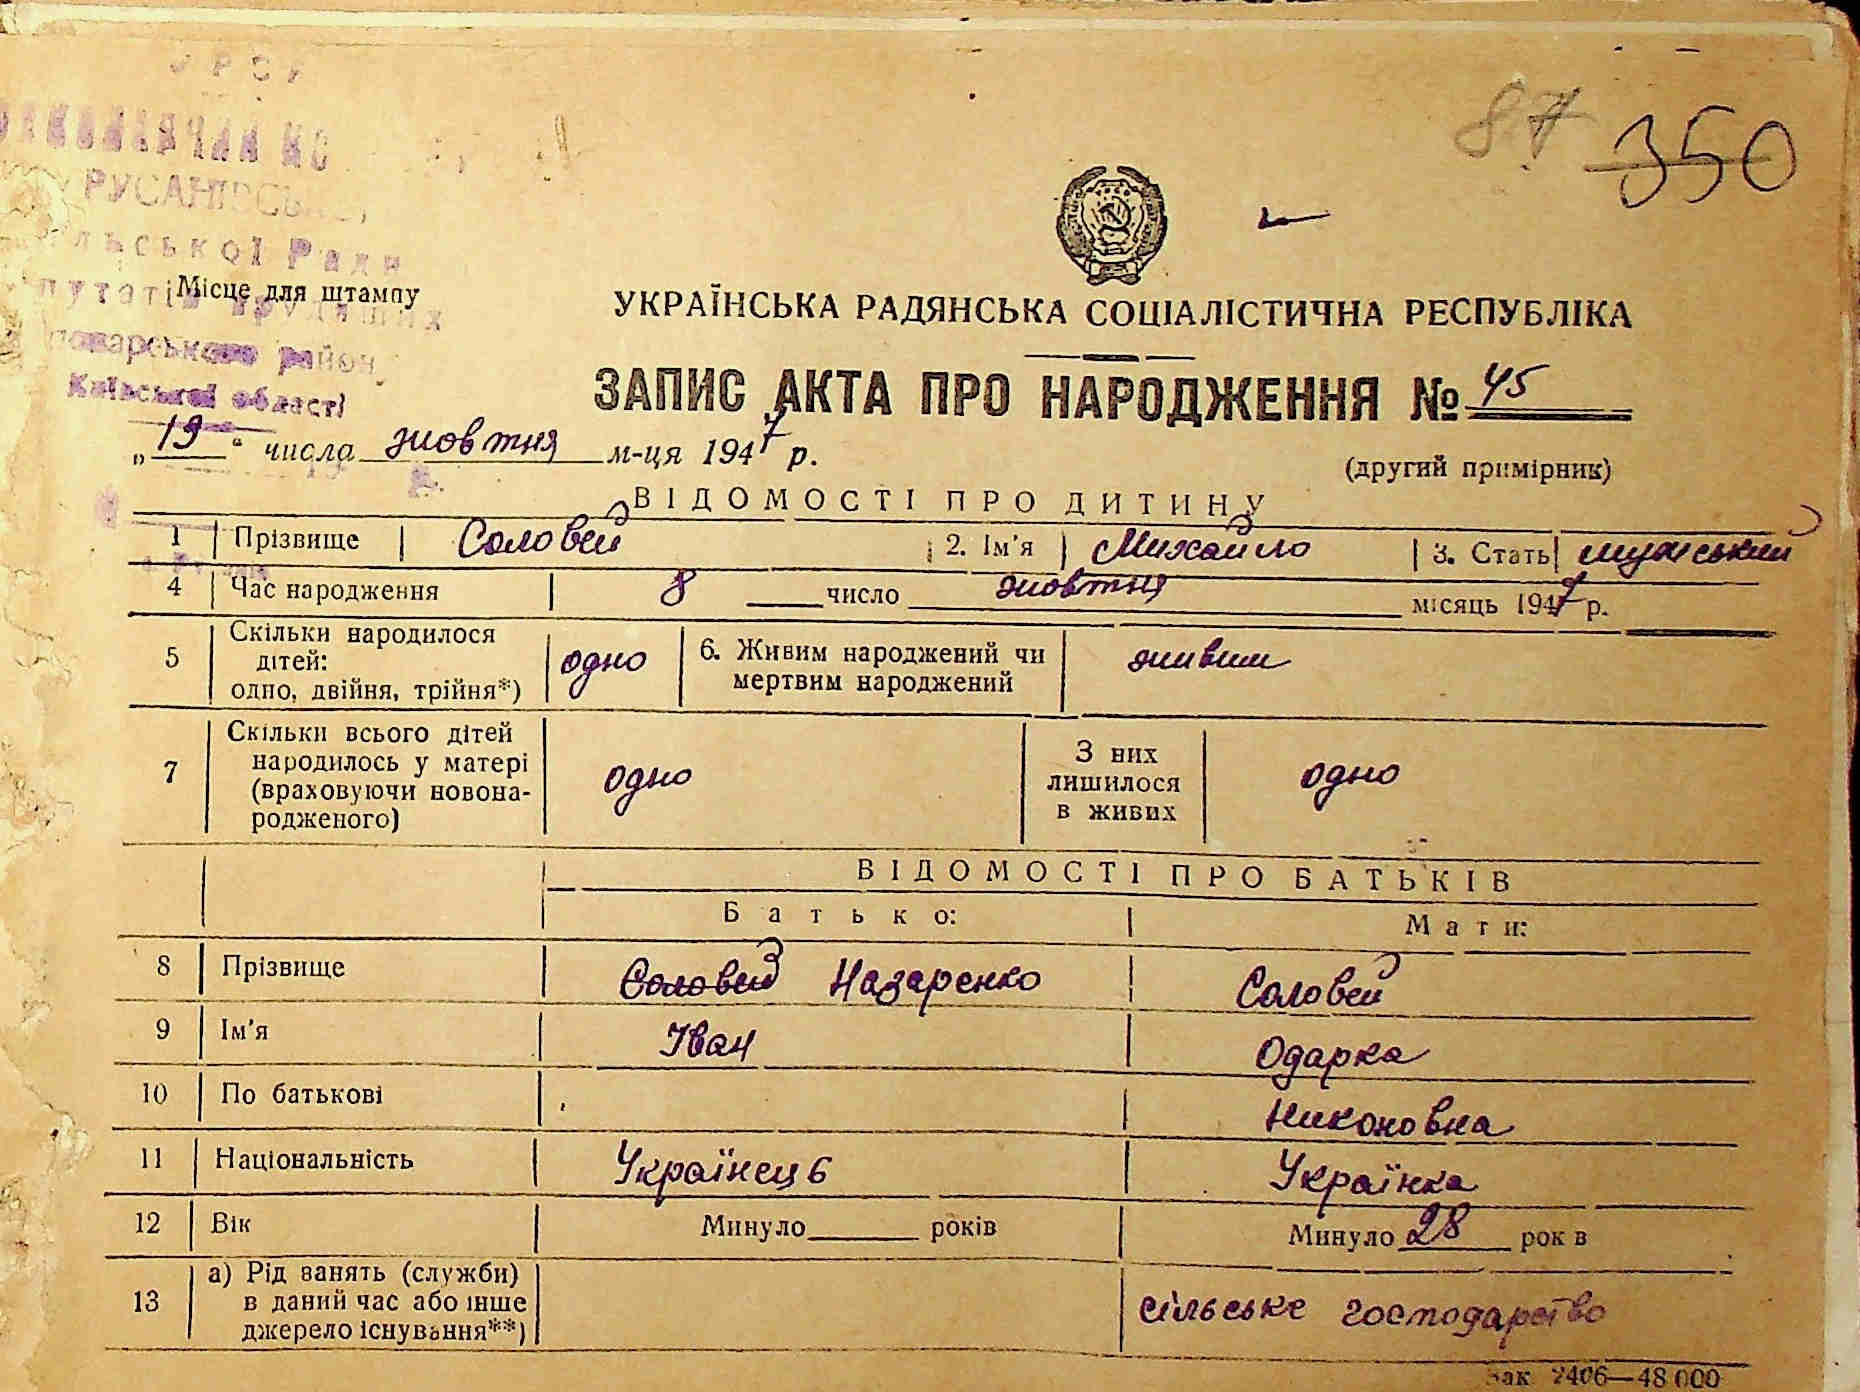 УРСР
РУСАНІВСЬКОЇ
Ради
87 350
Місце для штампу
району
Київської області
УКРАЇНСЬКА РАДЯНСЬКА СОЦІАЛІСТИЧНА РЕСПУБЛІКА
ЗАПИС АКТА ПРО НАРОДЖЕННЯ № 45
„19“ числа жовтня м-ця 1947 р.
(другий примірник)
ВІДОМОСТІ ПРО ДИТИНУ
1 Прізвище Соловей 2. Ім'я Михайло 3. Стать мужський
4 Час народження 8 число жовтня місяць 1947 р.
5 Скільки народилося дітей: одно, двійня, трійня*) одно 6. Живим народжений чи мертвим народжений живим
7 Скільки всього дітей народилось у матері (враховуючи новонародженого) одно З них лишилося в живих одно
ВІДОМОСТІ ПРО БАТЬКІВ
Батько: Мати:
8 Прізвище Соловей Назаренко Соловей
9 Ім'я Іван Одарка
10 По батькові Никоновна
11 Національність Українець Українка
12 Вік Минуло років Минуло 28 рок в
13 а) Рід занять (служби) в даний час або інше джерело існування**) сільське господарство
Зак 2406—48 000